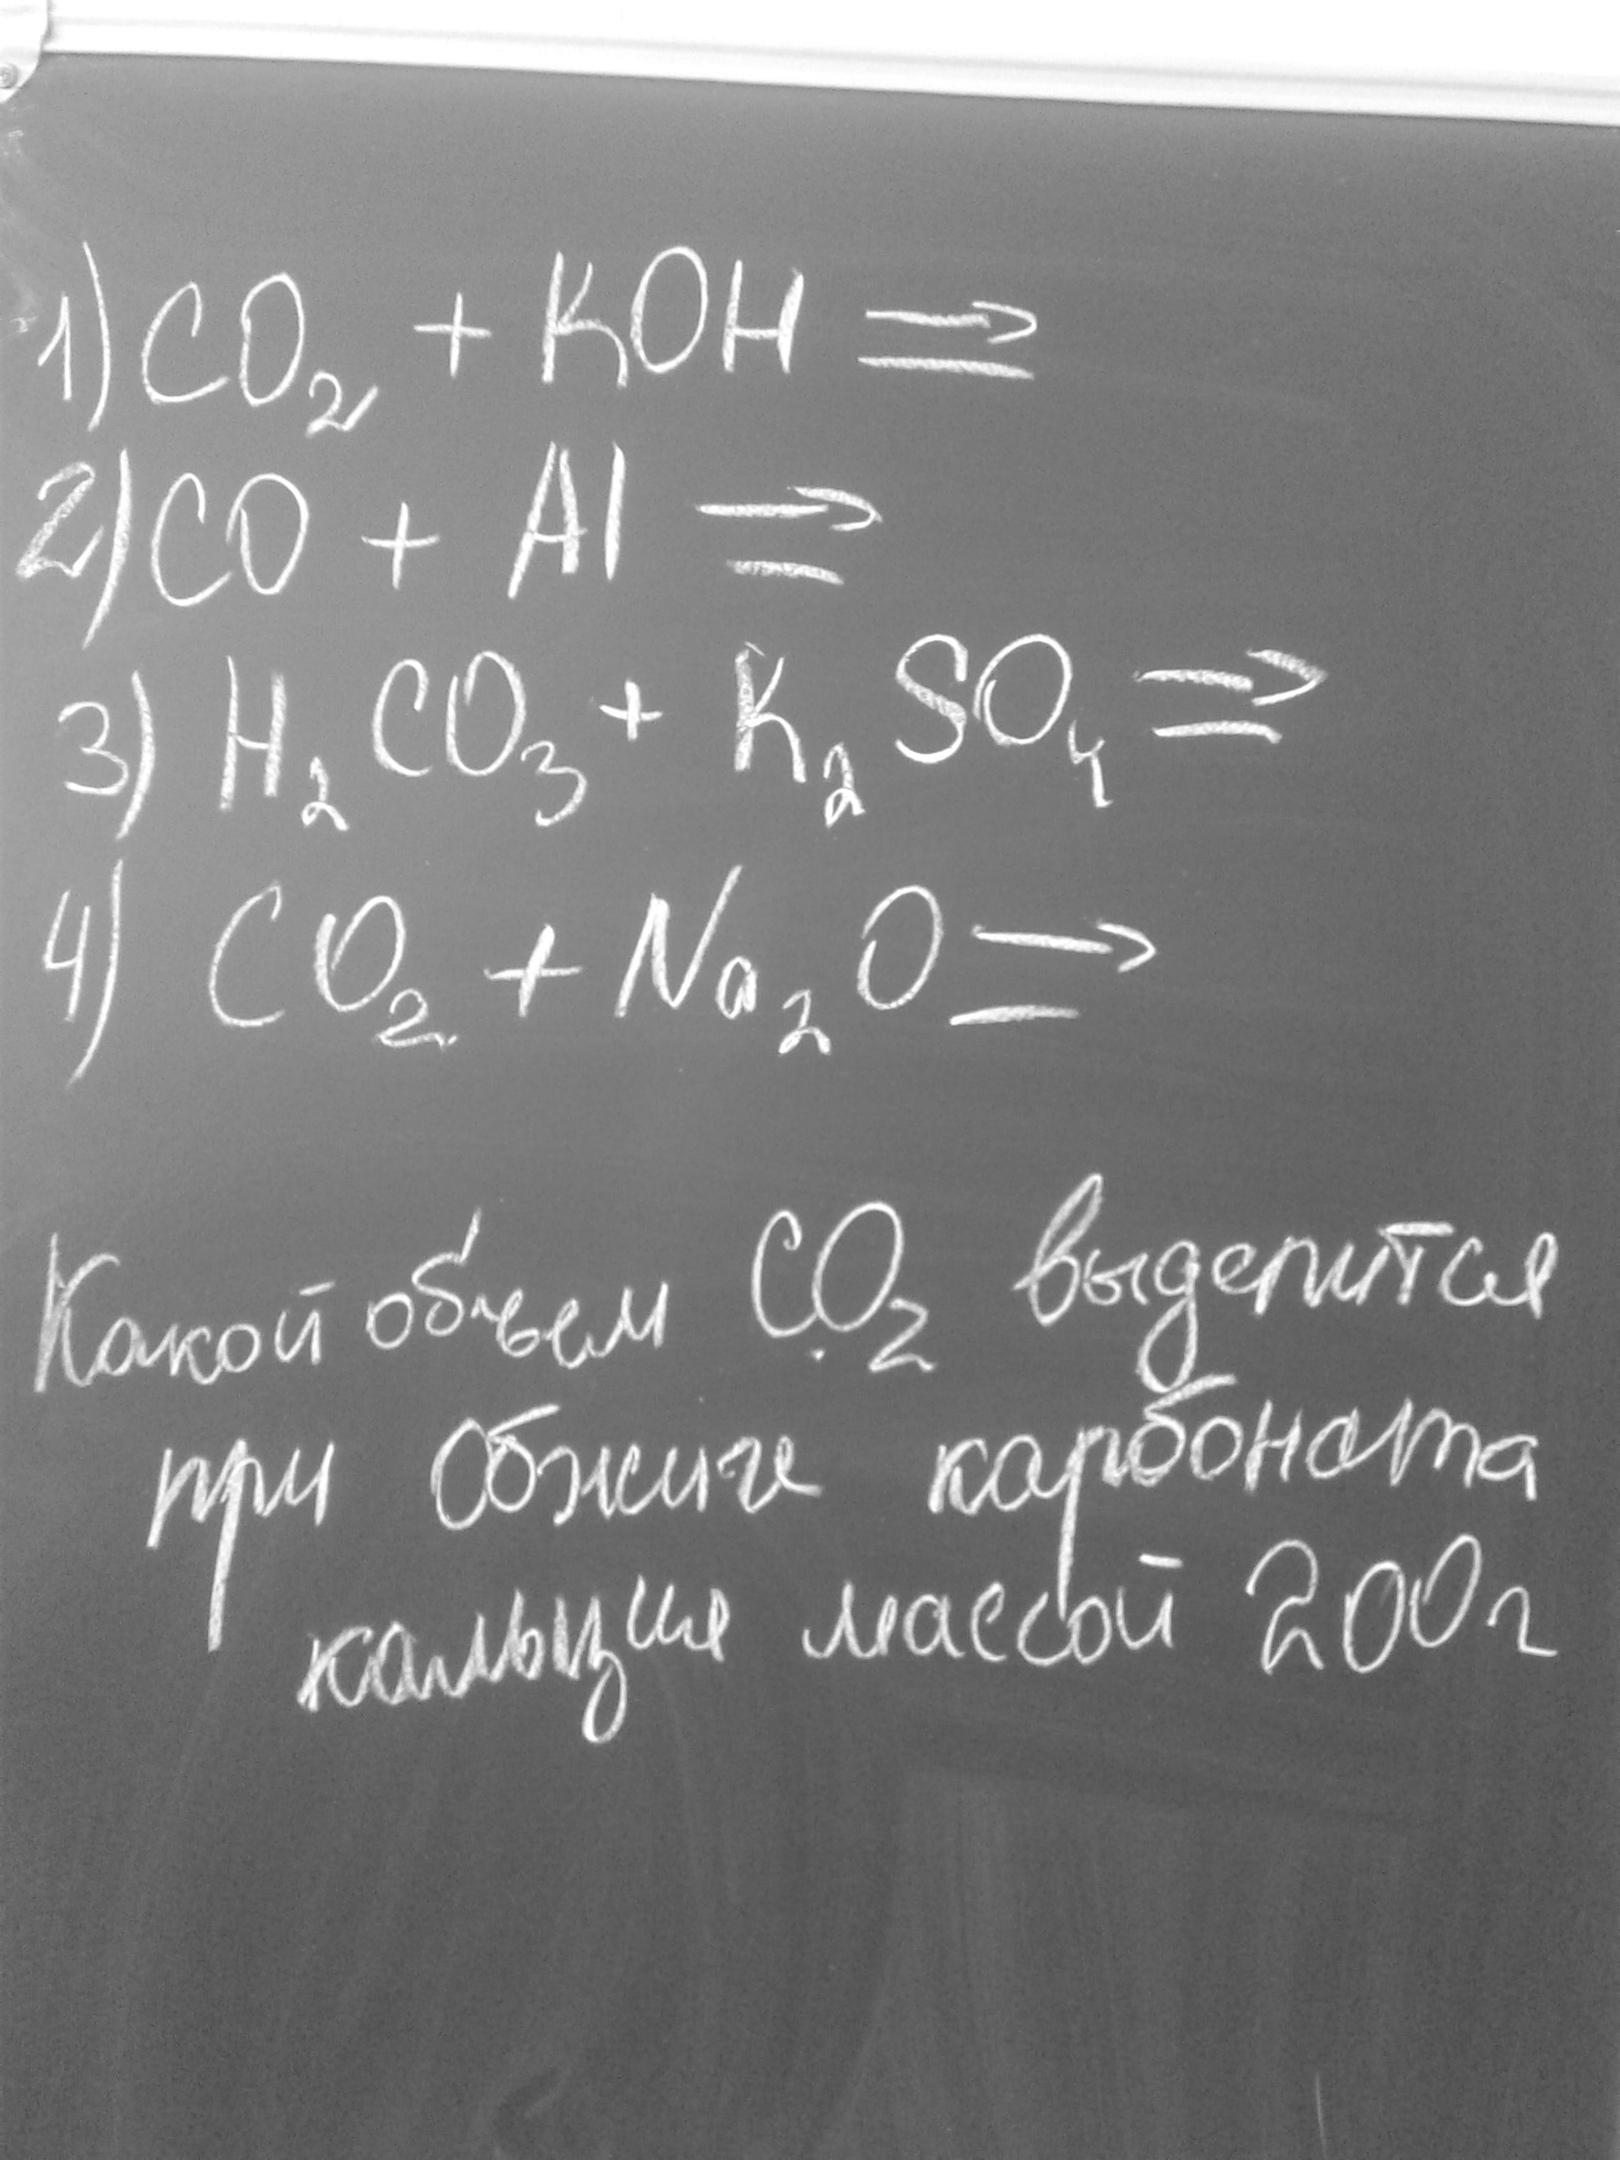 1) CO₂ + KOH ⇒
2) CO + Al ⇒
3) H₂CO₃ + K₂SO₄ ⇒
4) CO₂ + Na₂O ⇒
Какой объем CO₂ выделится
при обжиге карбоната
кальция массой 200г